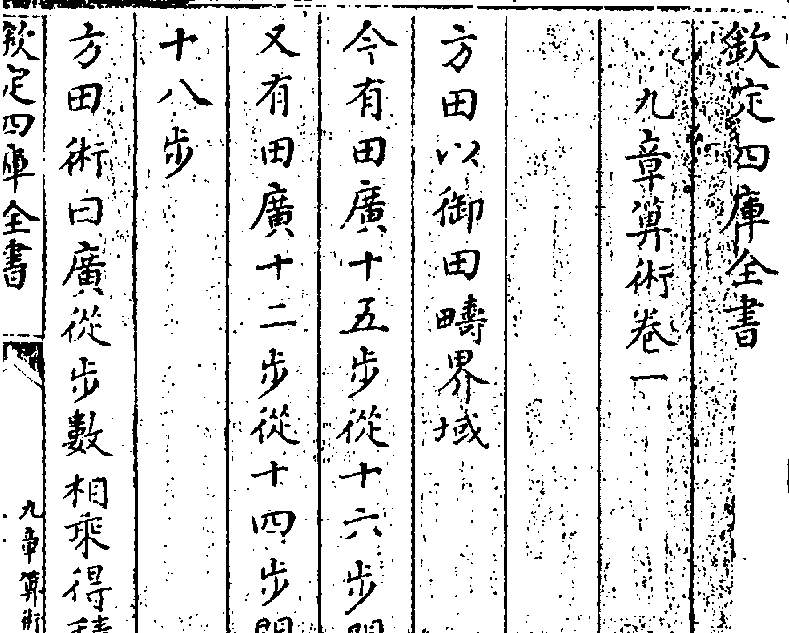 欽定四庫全書
九章算術卷一
方田以御田疇界域
今有田廣十五步從十六步問
又有田廣十二步從十四步問
十八步
方田術曰廣從步數相乘得積
欽定四庫全書
九章算術